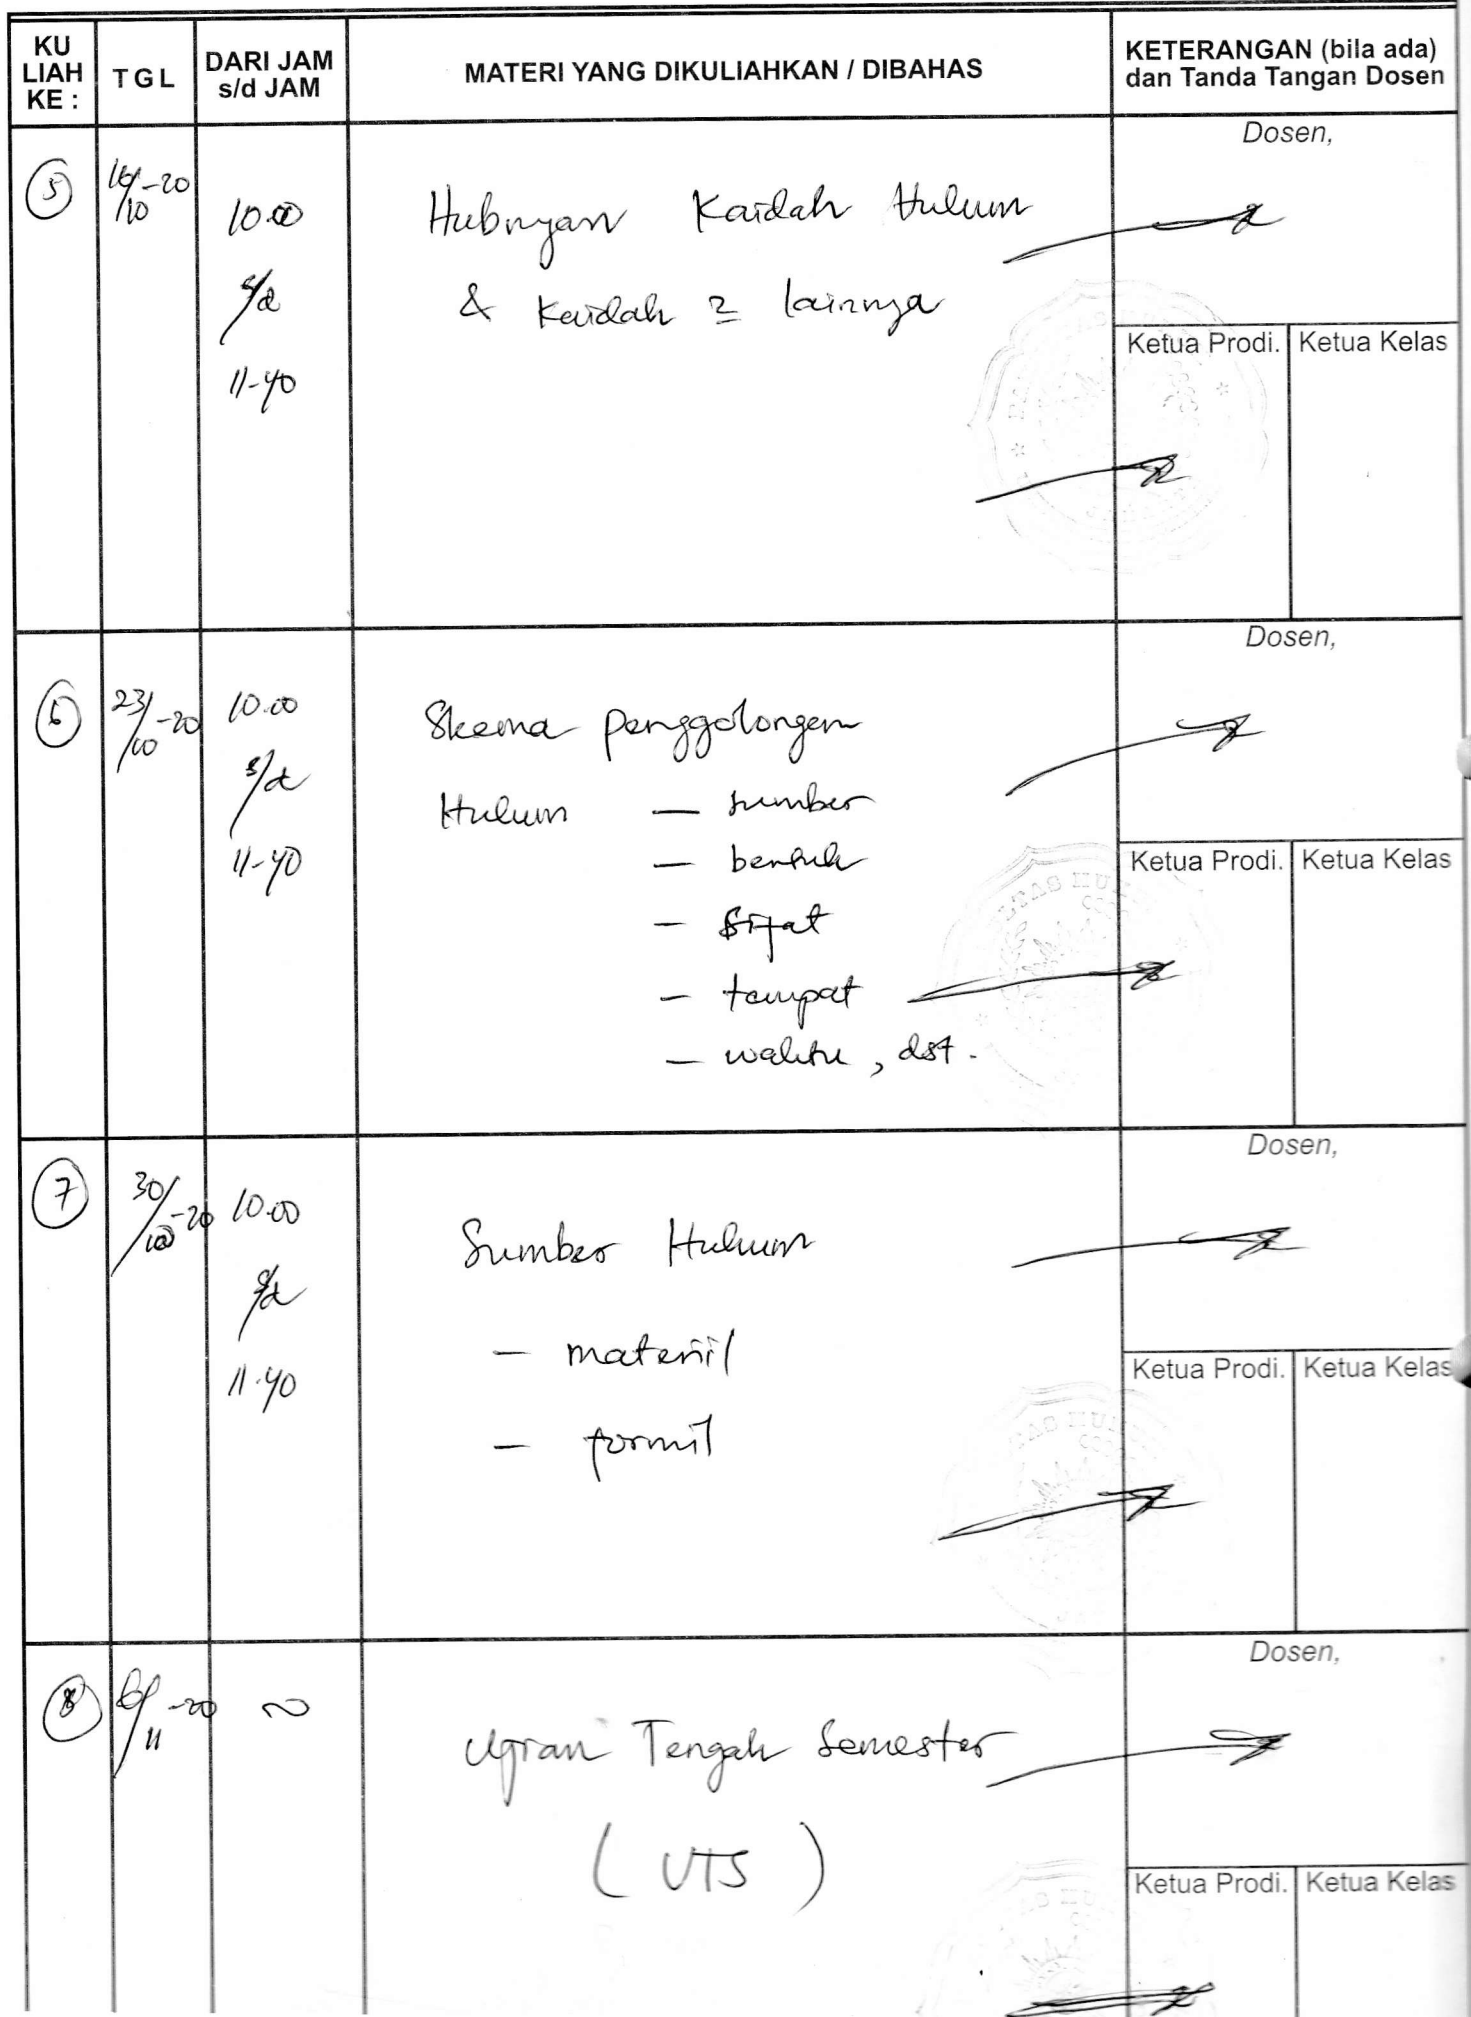 KU LIAH KE :
TGL
DARI JAM s/d JAM
MATERI YANG DIKULIAHKAN / DIBAHAS
KETERANGAN (bila ada) dan Tanda Tangan Dosen
Dosen,
5
16/10-20
10.00
s/d
11-40
Hubungan Kaidah Hukum
& Kaidah 2 lainnya
Ketua Prodi.
Ketua Kelas
Dosen,
6
23/10-20
10.00
s/d
11-40
Skema Penggolongan
Hukum — sumber
— bentuk
— sifat
— tempat
— waktu, dst.
Ketua Prodi.
Ketua Kelas
Dosen,
7
30/10-20
10.00
s/d
11.40
Sumber Hukum
— materiil
— formil
Ketua Prodi.
Ketua Kelas
Dosen,
8
6/11-20
~
Ujian Tengah Semester
( UTS )
Ketua Prodi.
Ketua Kelas